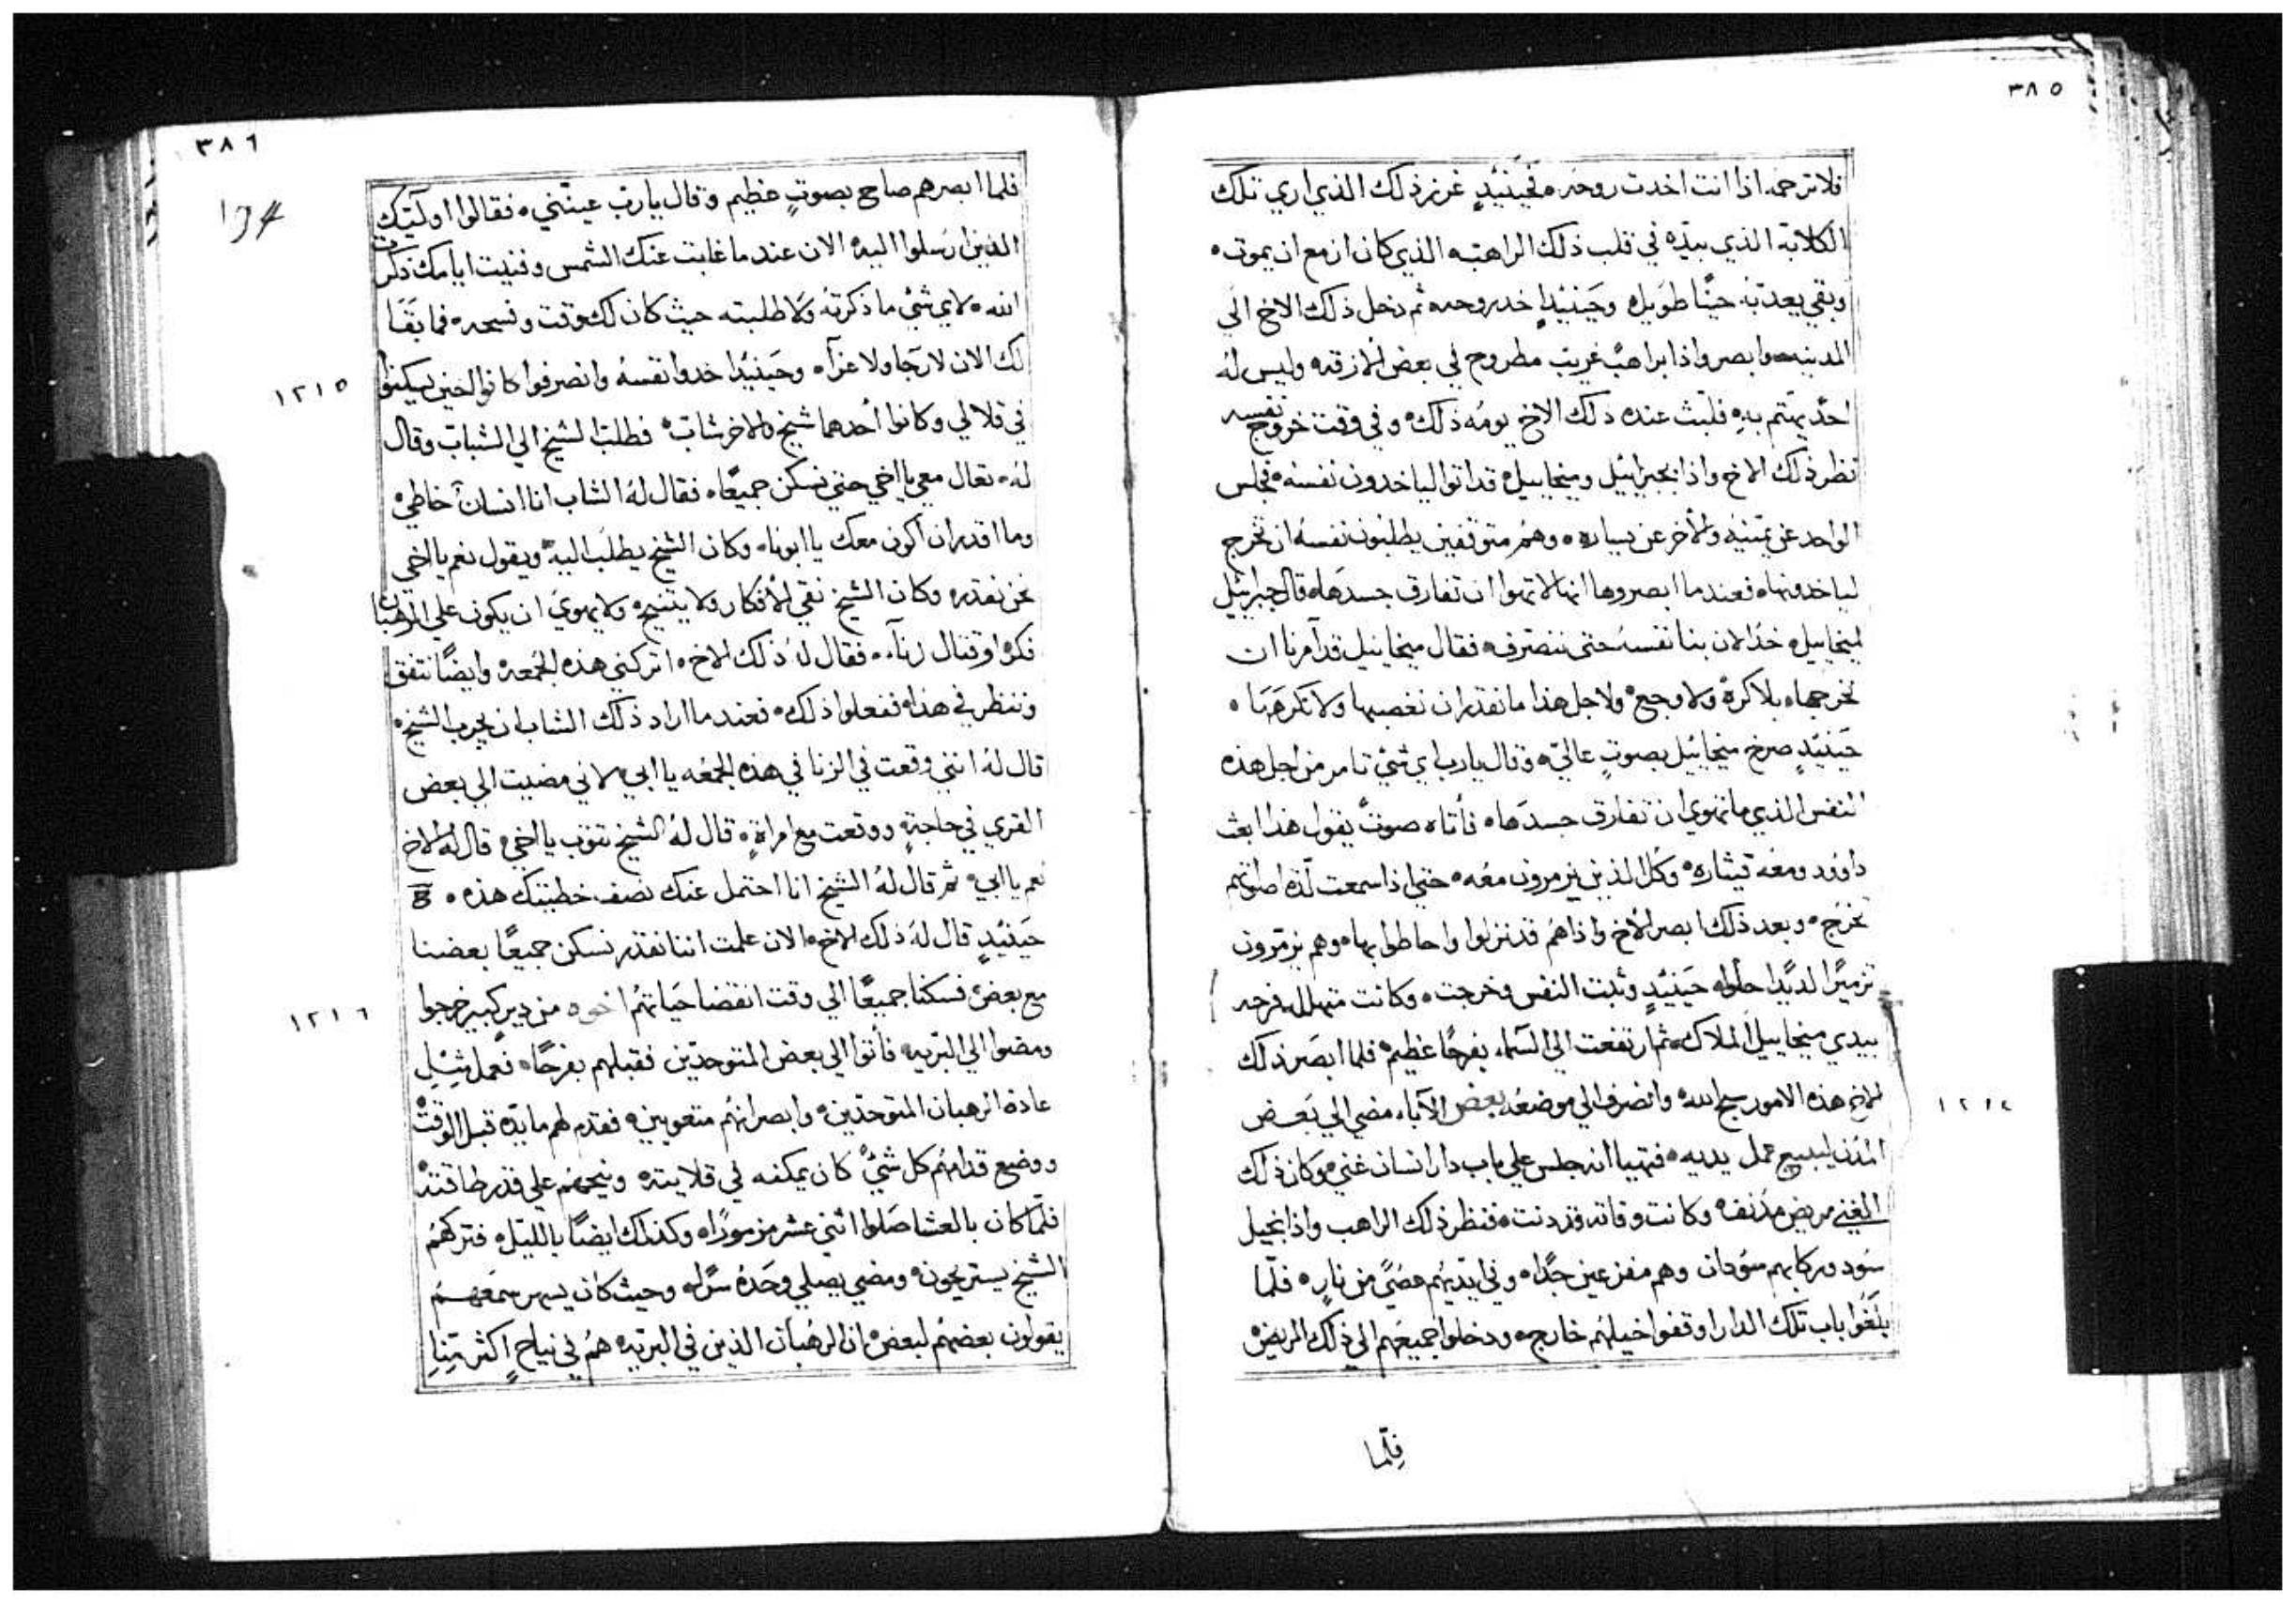 ٣٨٥
فلا ترحمه اذا انت اخدت روحه ه فحينيدٍ غرز ذلك الذي اري تلك
الكلابة الذي بيده في قلب ذلك الراهب ه الذي كان ازمع ان يموت ه
وبقي يعدبه حينًا طويل ه وحينيدٍ اخد روحه ثم دخل ذلك الاخ الي
المدينه وابصر واذا براهب غريب مطروح في بعض الازقه وليس له
احد يهتم به فلبث عنده ذلك الاخ يومه ذلك ه وفي وقت خروج نفسه
نظر ذلك الاخ واذا بجبراييل وميخاييل ه قد اتوا لياخدون نفسه ه فجلس
الواحد عن يمينه والاخر عن يساره ه وهم متوقفين يطلبون نفسه ان تخرج
لياخدونها ه فعند ما ابصروها انها لا تهوا ان تفارق جسدها ه قال جبراييل
لميخاييل ه خد الان بنا نفسه حتي ننصرف ه فقال ميخاييل قد آمرنا ان
نخرجها ه بلا كره ولا وجع ه ولاجل هذا ما نقدر ان نغصبها ولا نكرهها ه
حينيدٍ صرخ ميخاييل بصوتٍ عالي ه وقال يارب اي شي تامر من اجل هذه
النفس الذي ما تهوي ان تفارق جسدها ه فأتاه صوتٌ يقول هذا ابعث
داوود ومعه قيثاره ه وكل الذين يزمرون معه ه حتي اذا سمعت لذة اصواتهم
تخرج ه وبعد ذلك ابصر الاخ واذا هم قد نزلوا واحاطوا بها ه وهم يزمرون
تزميرًا لديدًا حلوا ه حينيدٍ وثبت النفس وخرجت ه وكانت متهلله فرحه
بيدي ميخاييل الملاك ه ثم ارتفعت الي السماء بفرحًا عظيم ه فلما ابصر ذلك
الاخ هذه الامور سبح الله ه وانصرف الي موضعه بعض الآباء مضي الي بعض
١٢١٤
المدن ليبيع عمل يديه ه فتهيا انه جلس علي باب دار انسان غني ه وكان ذلك
الغني مريض مدنف ه وكانت وفاته قد دنت ه فنظر ذلك الراهب واذا بخيل
سود وركابهم سودان وهم مفزعين جدًا ه وفي ايديهم عصي من نار ه فلما
بلغوا باب تلك الدار اوقفوا خيلهم خارج ه ودخلوا جميعهم الي ذلك المريض
فلما
٣٨٦
194
فلما ابصرهم صاح بصوتٍ عظيم وقال يارب عينني ه فقالوا اوليك
الذين ارسلوا اليه ه الان عند ما غابت عنك الشمس وفنيت ايامك ذكرت
الله ه لاي شي ما ذكرته ولا طلبته حيث كان لك وقت وفسحه ه فما بقا
لك الان لا رجا ولا عزآه وحينيدًا خدوا نفسه وانصرفوا كانوا اخين يسكنوا
١٢١٥
في قلالي وكانوا أحدهما شيخ ه والاخر شاب ه فطلب الشيخ الي الشاب وقال
له ه تعال معي يا اخي حتي نسكن جميعًا ه فقال له الشاب انا انسان خاطي ه
وما اقدر ان اكون معك يا ابونا ه وكان الشيخ يطلب اليه ه ويقول نعم يا اخي
نحن نقدر ه وكان الشيخ نقي الافكار ولا يتنيح ه ولا يهوي ان يكون علي الرهبان
فكر ه او قتال زنآء ه فقال له ذلك الاخ ه اتركني هذه الجمعه وايضًا نتفق
وننظر في هذا ه ففعلوا ذلك ه فعند ما اراد ذلك الشاب ان يجرب الشيخ ه
قال له انني وقعت في الزنا في هذه الجمعه يا ابي ه لاني مضيت الي بعض
القري في حاجةٍ ووقعت مع امراةٍ ه قال له الشيخ تتوب يا اخي ه قال له الاخ
نعم يا ابي ه ثم قال له الشيخ انا احتمل عنك نصف خطيتك هذه ه
حينيدٍ قال له ذلك الاخ ه الان علمت اننا نقدر نسكن جميعًا بعضنا
مع بعض ه فسكنا جميعًا الي وقت انقضا حياتهم اخوه من ديرٍ كبير خرجوا
١٢١٦
ومضوا الي البريه ه فأتوا الي بعض المتوحدين فقبلهم بفرحًا ه فعمل مثل
عادة الرهبان المتوحدين ه وابصر انهم متعوبين ه فقدم لهم مايده قبل الوقت ه
ووضع قدامهم كل شي ه كان يمكنه في قلايته ه ونيحهم علي قدر طاقته ه
فلما كان بالعشا صلوا اثني عشر مزمورًا ه وكذلك ايضًا بالليل ه فتركهم
الشيخ يستريحون ه ومضي يصلي وحده سرًا ه وحيث كان يسهر سمعهم
يقولون بعضهم لبعض ه ان الرهبان الذين في البريه هم في نياحٍ اكثر مننا